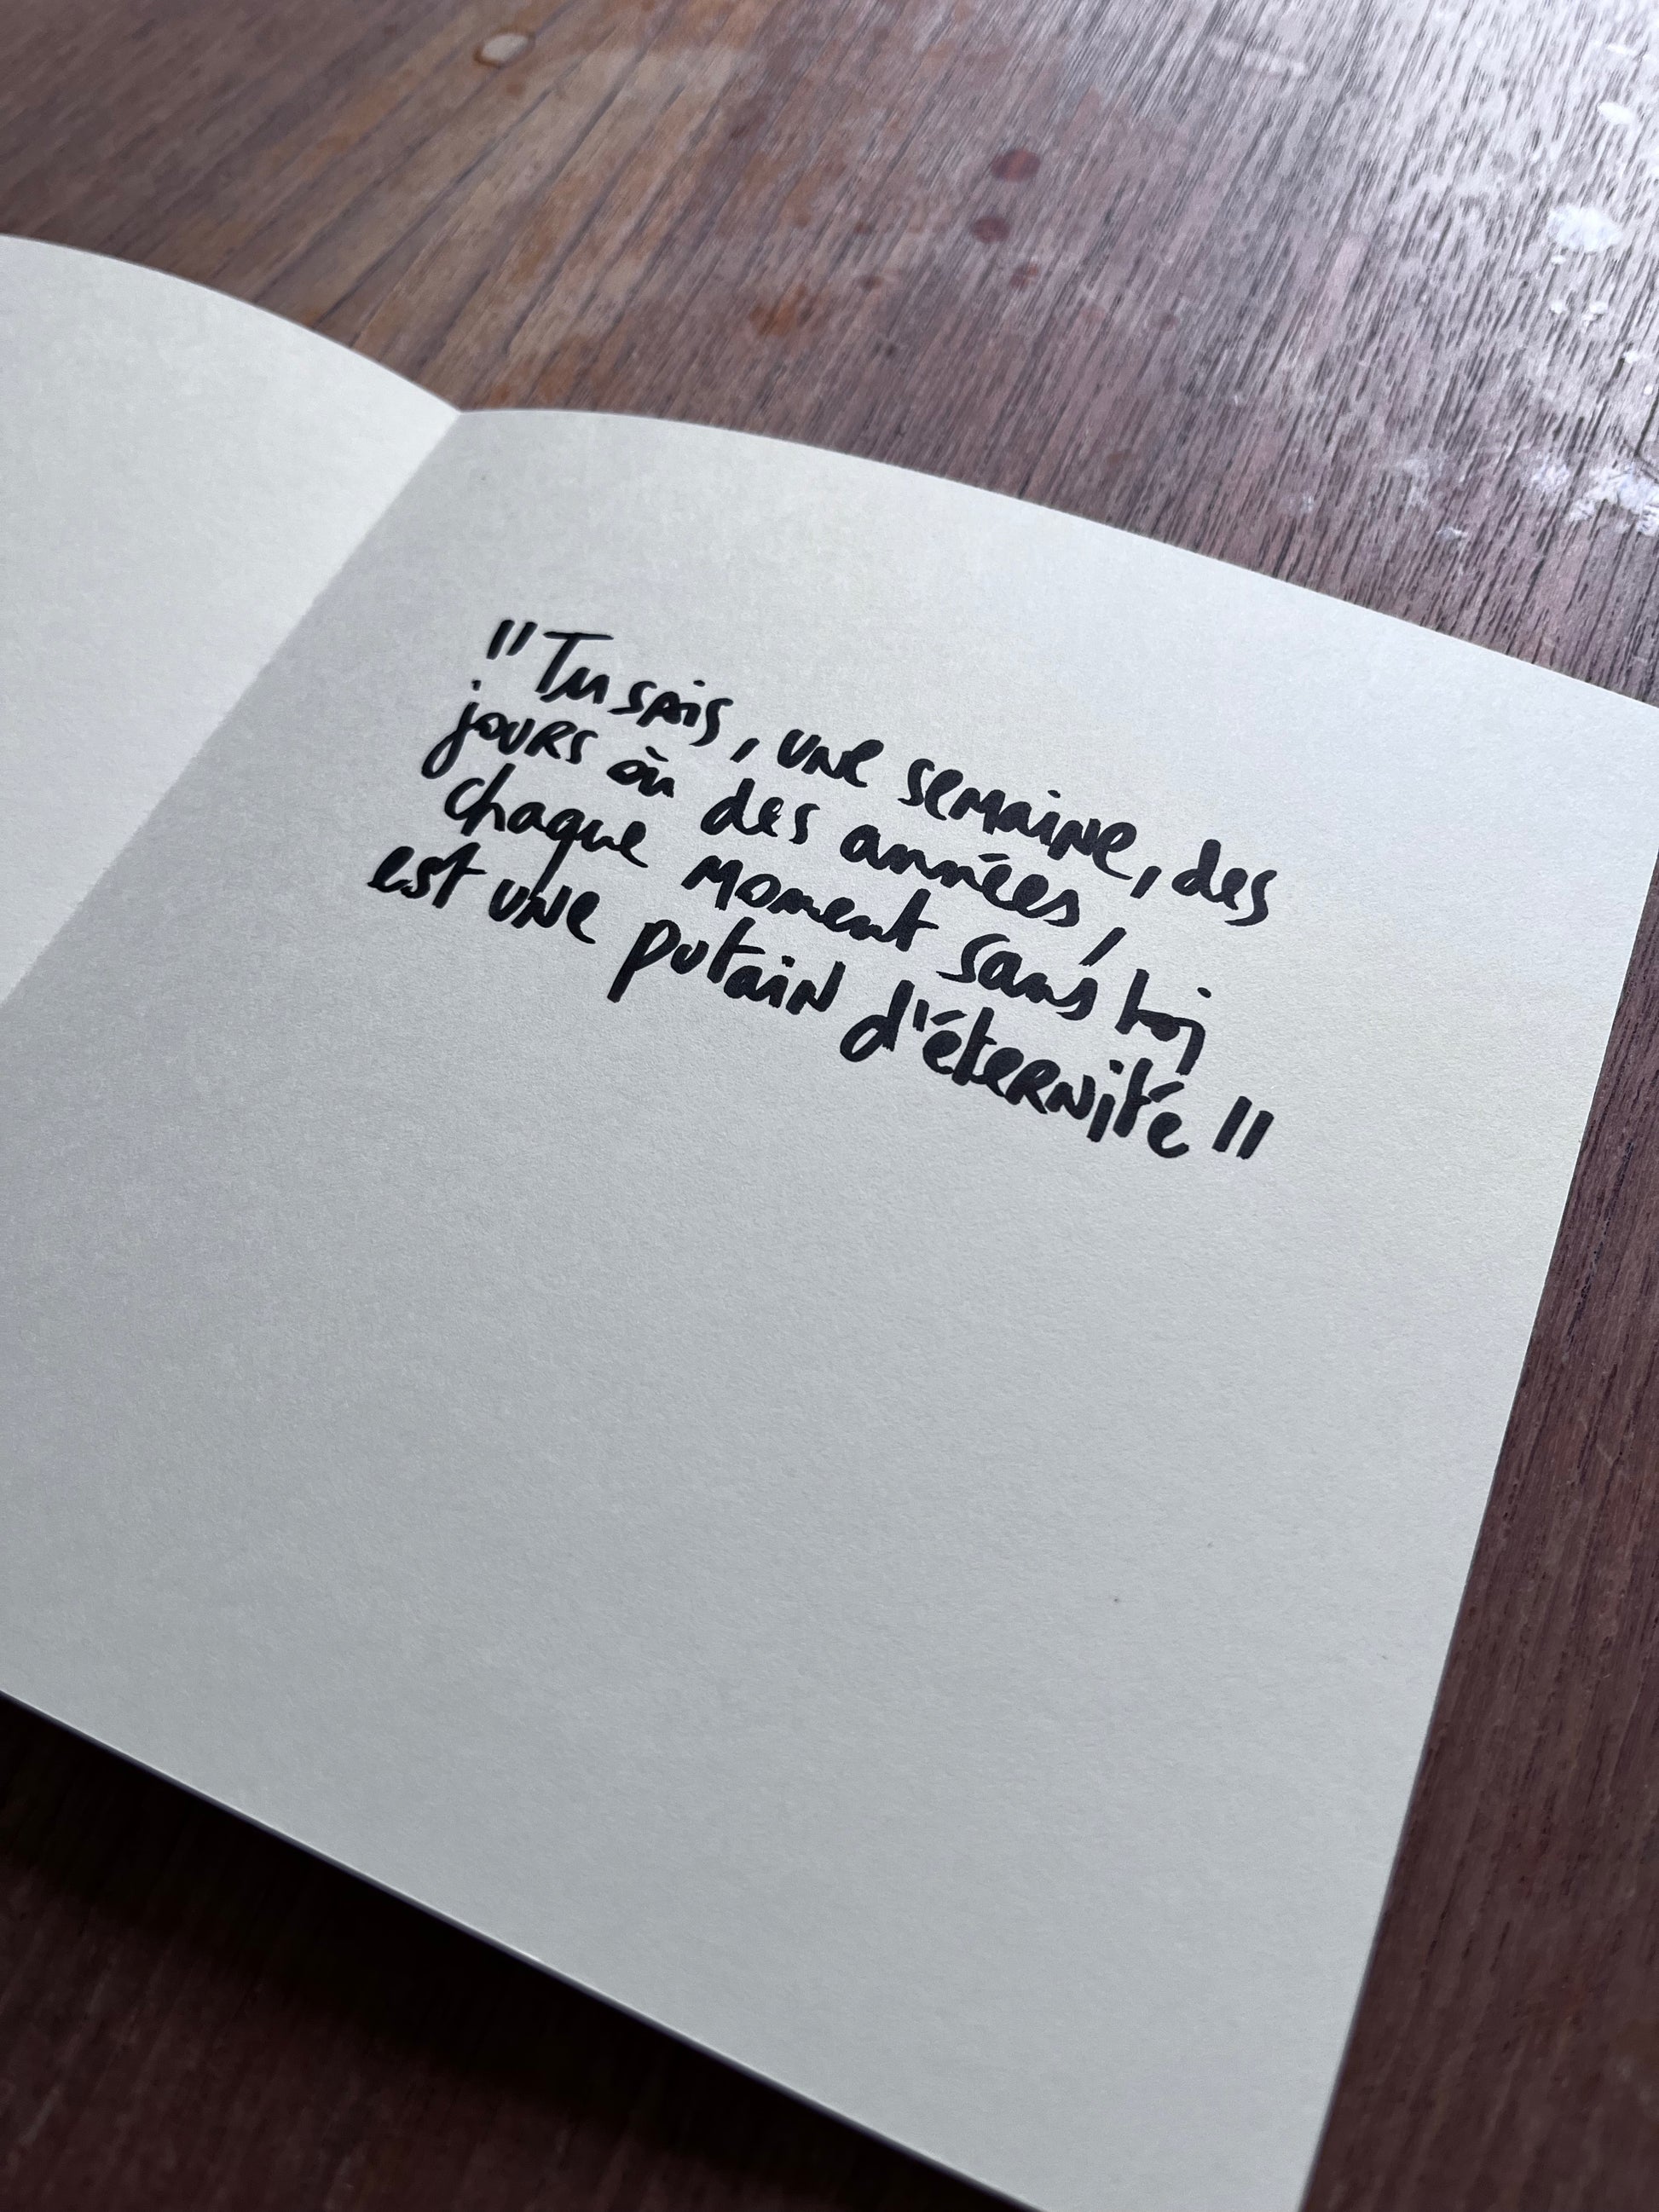 "Tu sais, une semaine, des
jours où des années,
chaque moment sans toi
est une putain d'éternité"